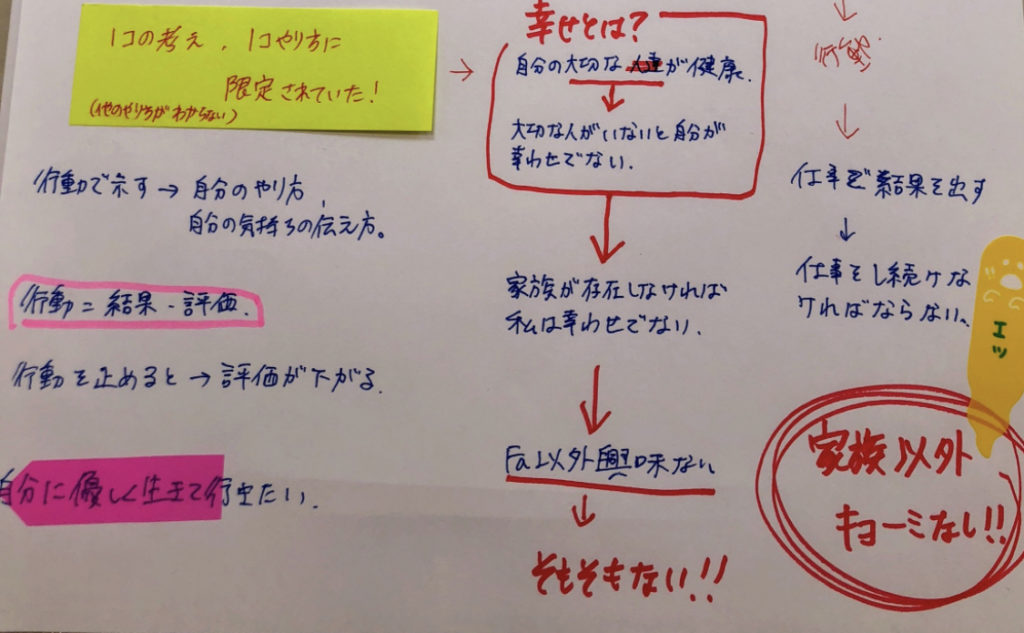 1コの考え、1コやり方に
限定されていた!
(他のやり方がわからない)
行動で示す→自分のやり方、
自分の気持ちの伝え方。
行動=結果・評価.
行動を止めると→評価が下がる.
自分に優しく生きて行きたい.
→
幸せとは?
自分の大切な が健康.
↓
大切な人がいないと自分が
幸わせでない.
↓
家族が存在しなければ
私は幸わせでない.
↓
Fa以外興味ない
↓
そもそもない!!
↓
行動
↓
仕事で結果を出す
↓
仕事をし続けな
ければならない、
エッ
家族以外
キョーミなし!!